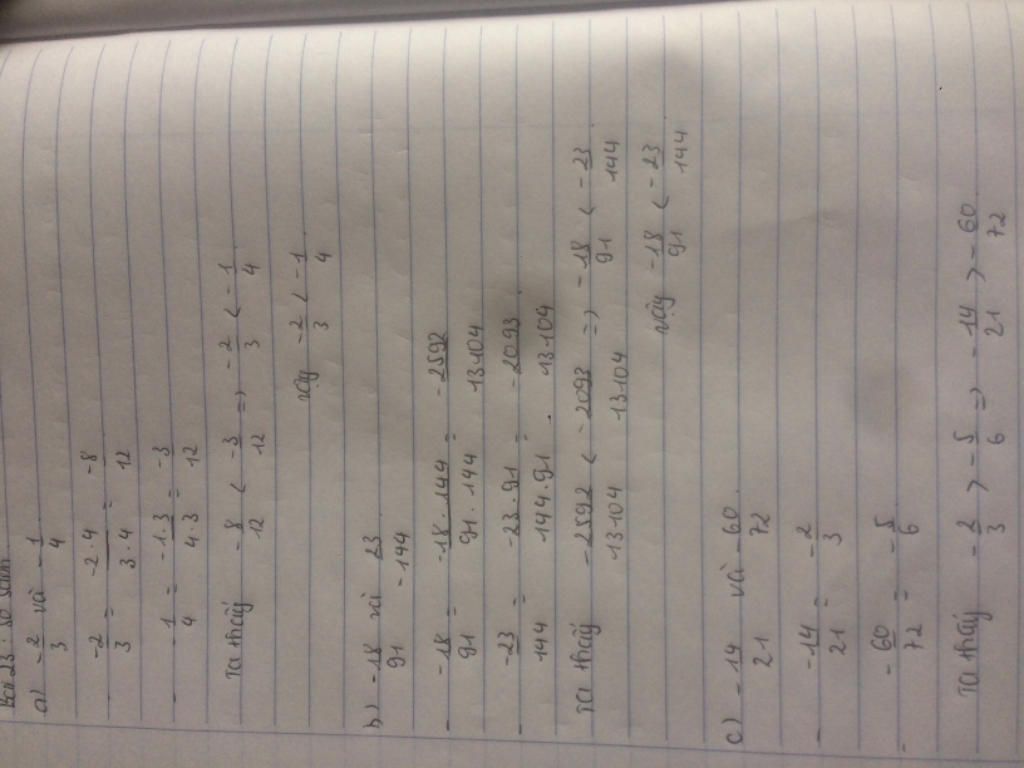 Bài 23: So sánh
a) -2/3 và -1/4
-2/3 = -2.4/3.4 = -8/12
-1/4 = -1.3/4.3 = -3/12
Ta thấy -8/12 < -3/12 => -2/3 < -1/4
vậy -2/3 < -1/4
b) -18/91 và 23/-144
-18/91 = -18.144/91.144 = -2592/13104
-23/144 = -23.91/144.91 = -2093/13104
Ta thấy -2592/13104 < -2093/13104 => -18/91 < -23/144
vậy -18/91 < -23/144
c) -14/21 và -60/72
-14/21 = -2/3
-60/72 = -5/6
Ta thấy -2/3 > -5/6 => -14/21 > -60/72